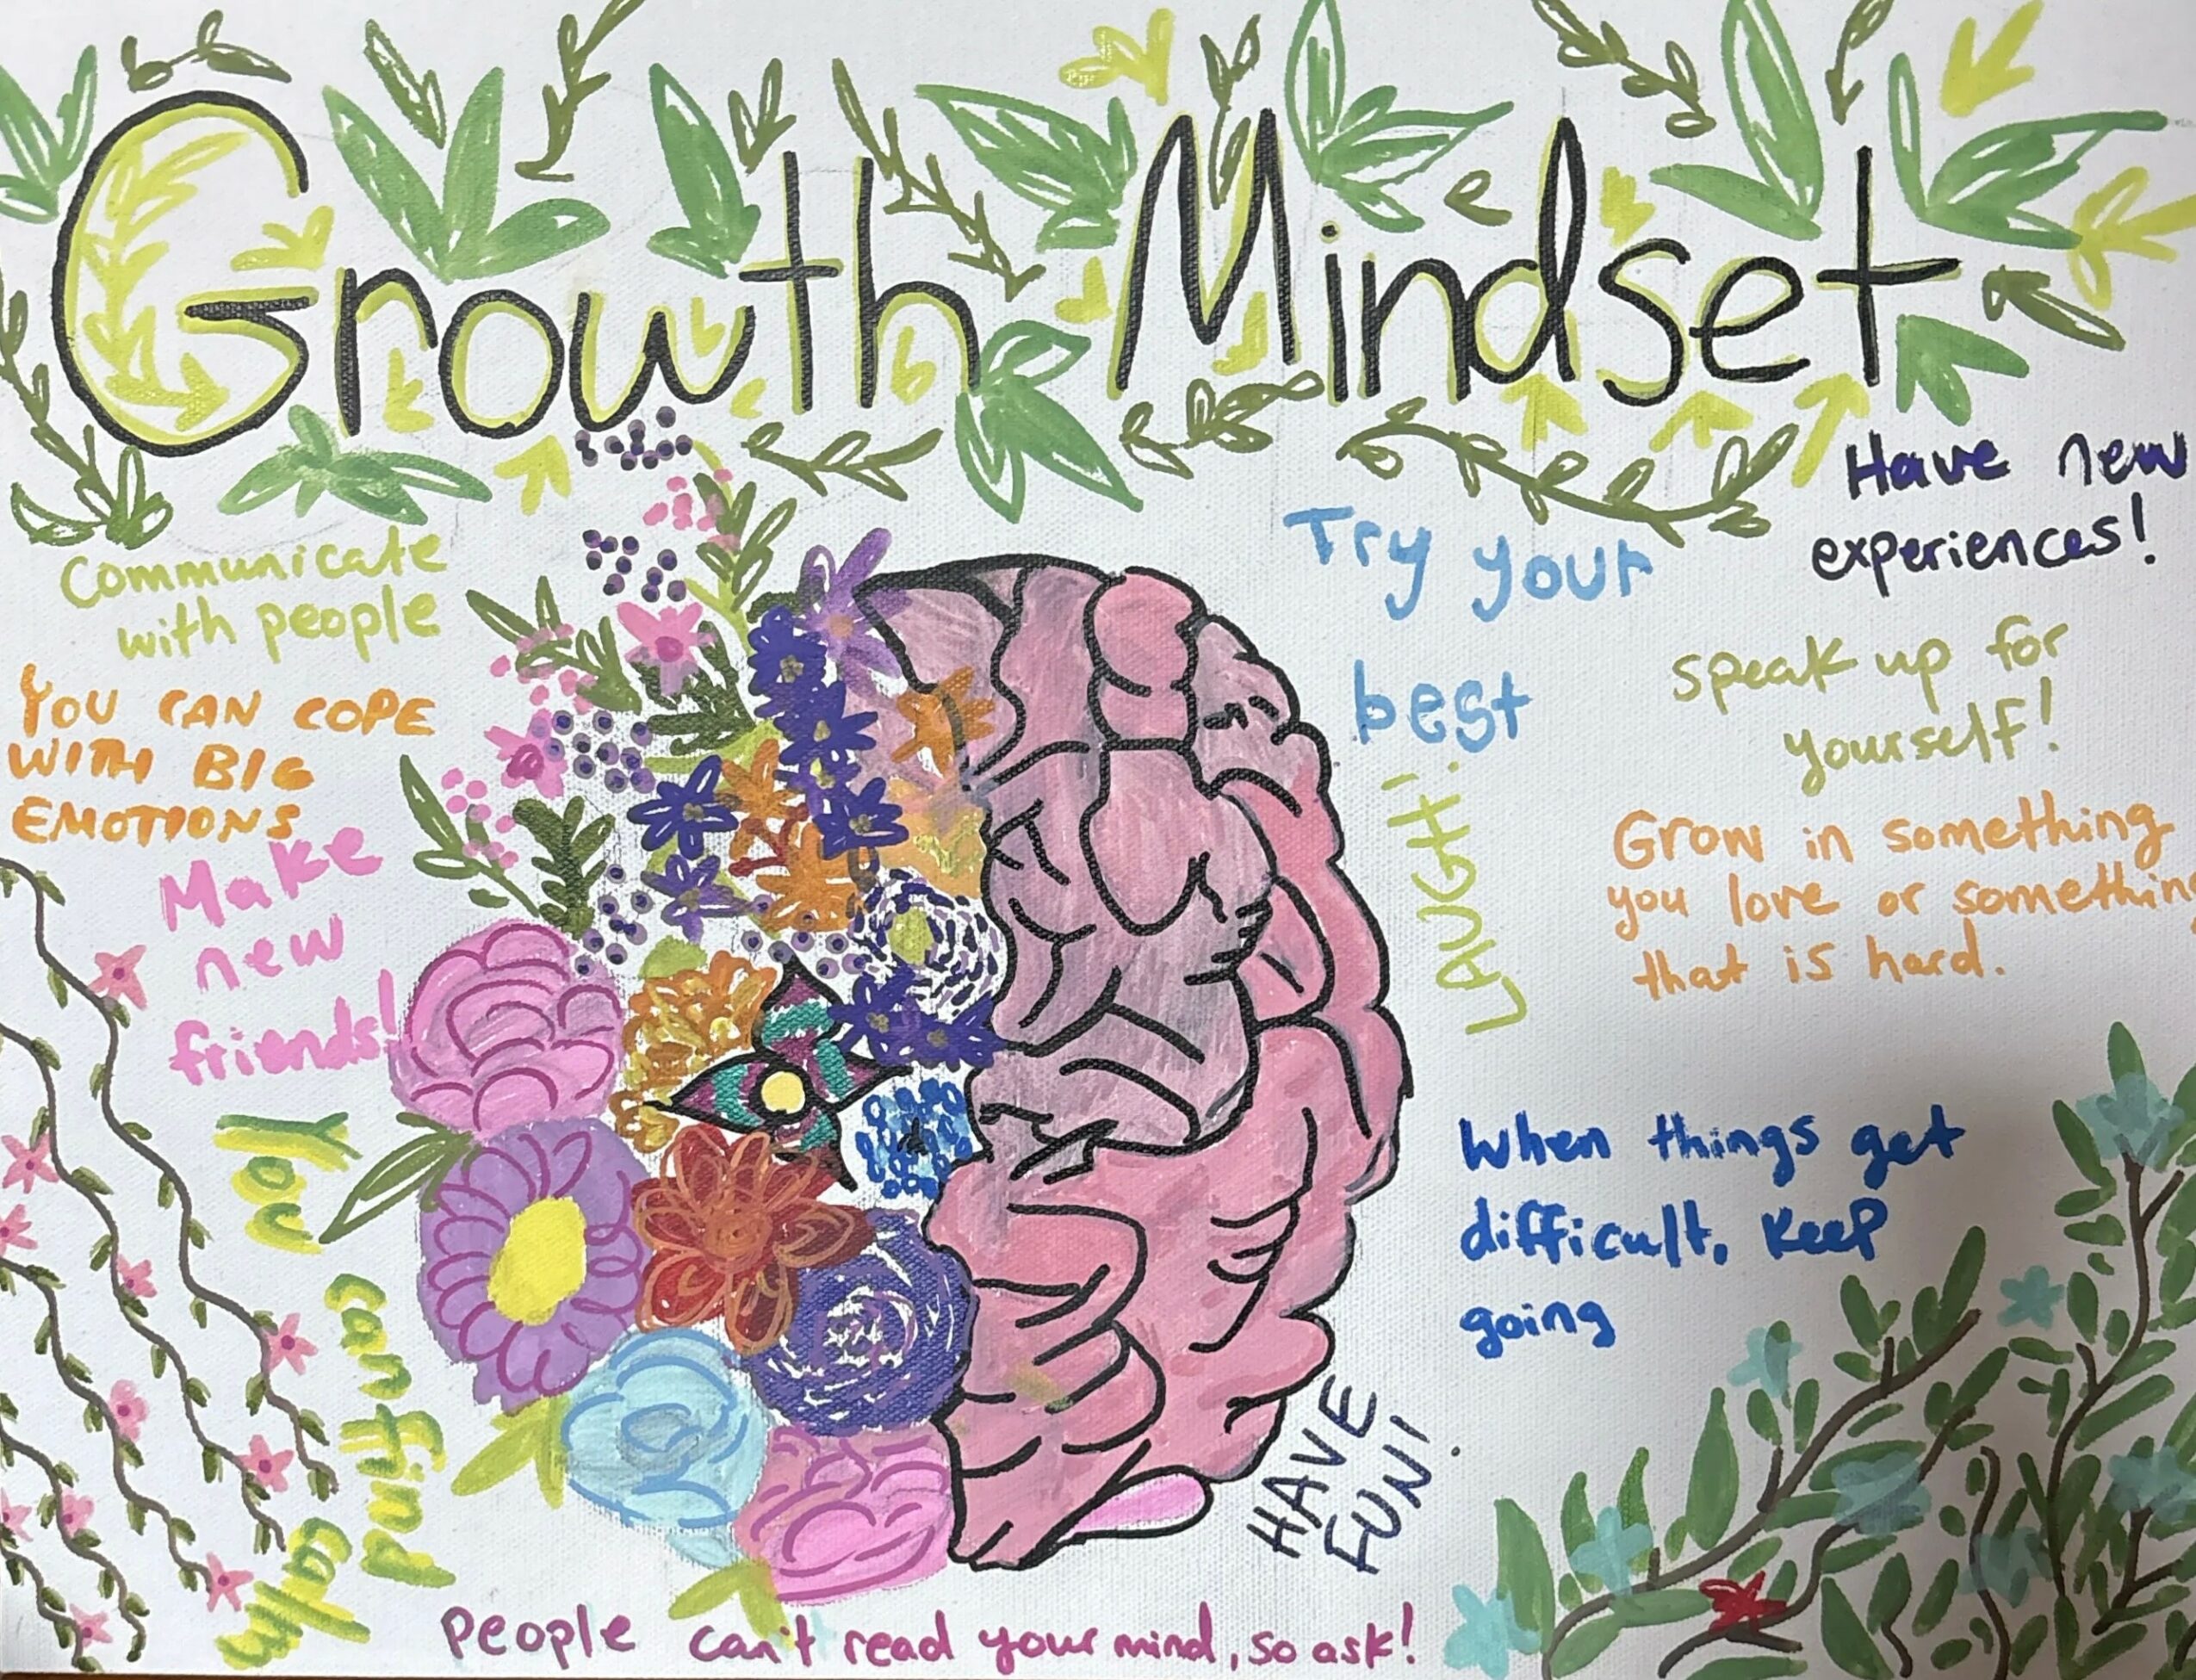 Growth Mindset
Communicate
with people
YOU CAN COPE
WITH BIG
EMOTIONS
Make
new
friends!
You
can find
Try your
best
Have new
experiences!
Speak up for
yourself!
LAUGH!
Grow in something
you love or something
that is hard.
When things get
difficult, keep
going
HAVE
FUN!
People can't read your mind, so ask!